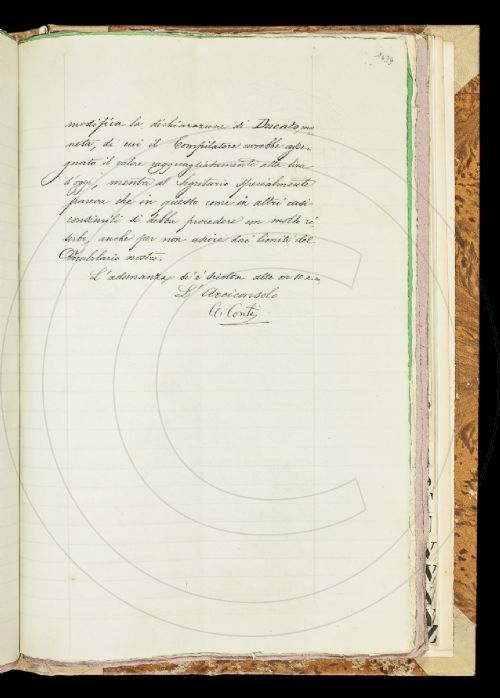 modifica la dichiarazione di Ducato, mo
neta, di cui il Compilatore avrebbe asse-
gnato il valore ragguagliatamente alla lira
d'oggi, mentre al Segretario specialmente
pareva che in questo come in altri casi
consimili si debba procedere con molto ri
serbo, anche per non uscire dai limiti del
Vocabolario nostro.
L'adunanza si è sciolta alle ore 10 a.m.
L'Arciconsolo
A. Conti